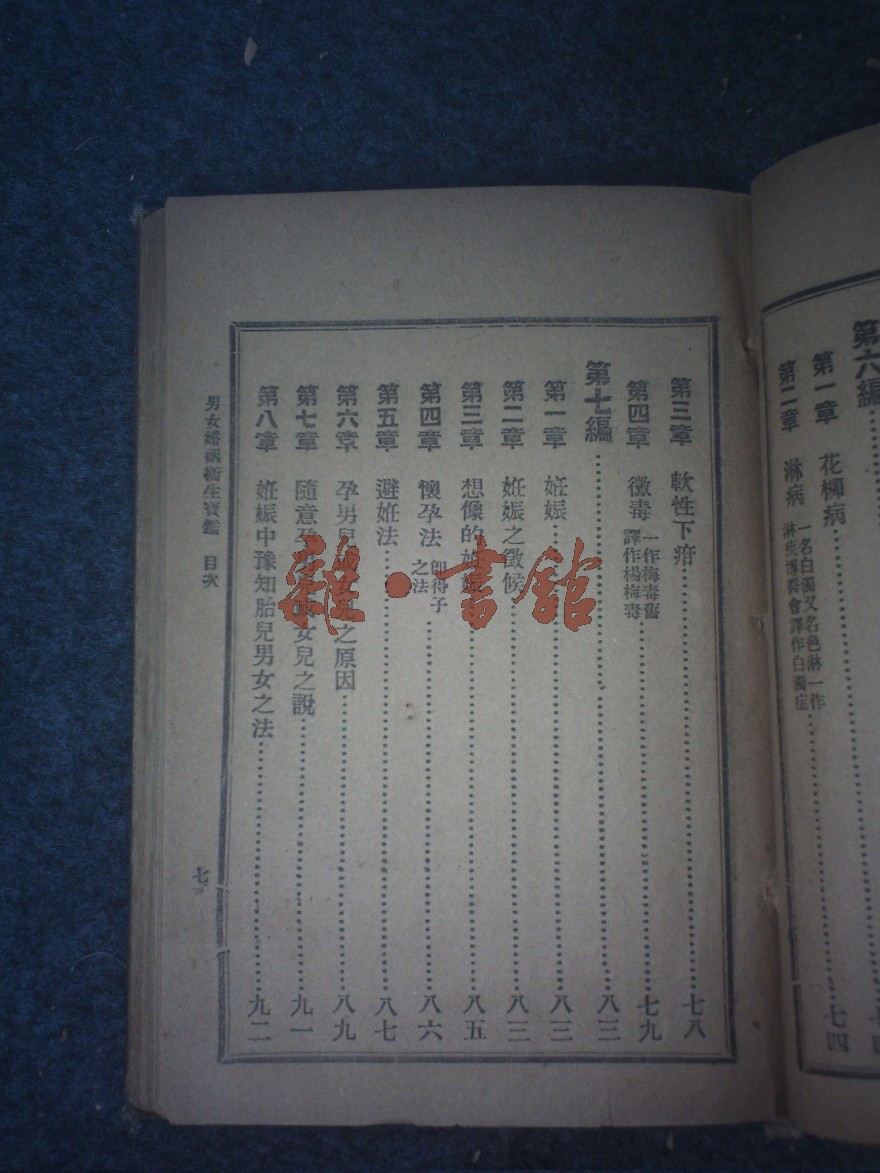 第六編
七四
第一章 花柳病
七四
第二章 淋病 一名白濁又名色淋一作淋疾博醫會譯作白濁症
第三章 軟性下疳
七八
第四章 黴毒 一作梅毒舊譯作楊梅毒
七九
第七編
八三
第一章 姙娠
八三
第二章 姙娠之徵候
八三
第三章 想像的姙娠
八五
第四章 懷孕法 卽得子之法
八六
第五章 避姙法
八七
第六章 孕男兒或女兒之原因
八九
第七章 隨意孕男兒或女兒之說
九一
第八章 姙娠中豫知胎兒男女之法
九二
男女婚姻衞生寶鑑 目次
七
雜·書館